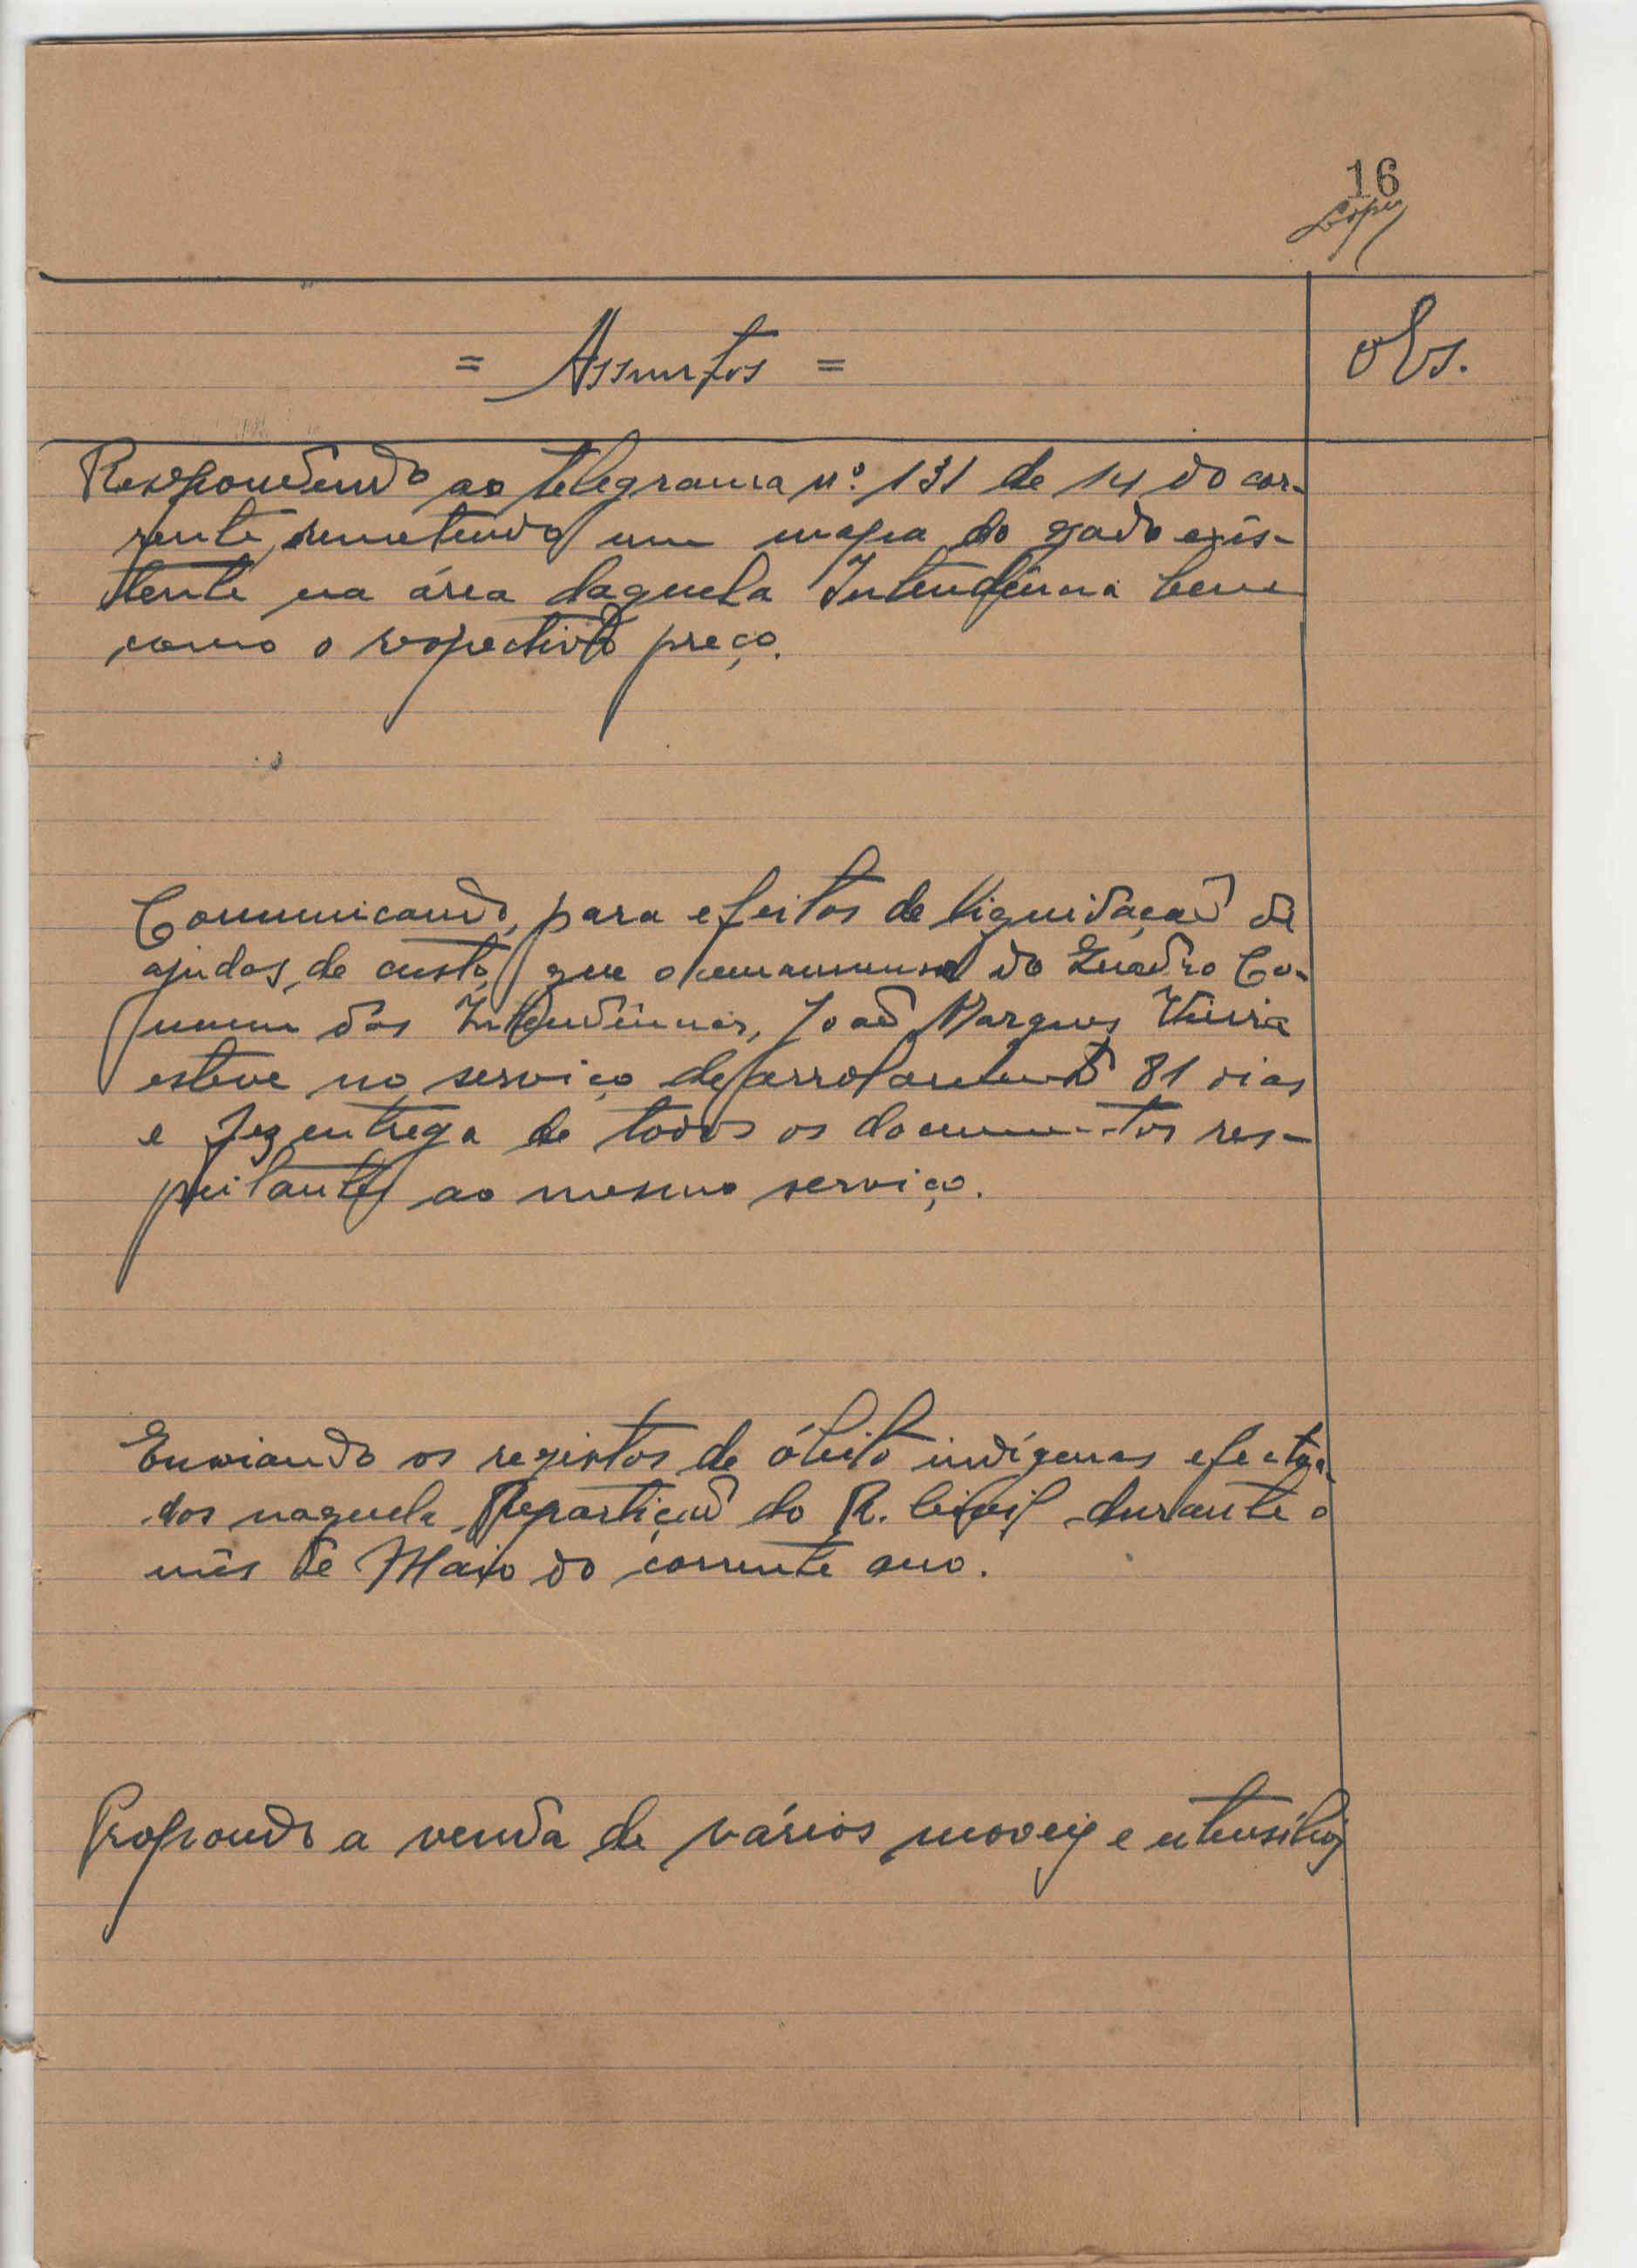 16
Lopes
= Assuntos =
Obs.
Respondendo ao telegrama nº. 131 de 14 do cor-
rente, remetendo um mapa do gado exis-
tente na área daquela Intendência bem
como o respectivo preço.
Comunicando, para efeitos de liquidação de
ajudas de custo, que o amanuense do Quadro Co-
mum das Intendências, João Marques Vieira
esteve no serviço de arrolamento 81 dias
e fez entrega de todos os documentos res-
peitantes ao mesmo serviço.
Enviando os registos de óbito indígenas efectua-
dos naquela Repartição do R. Civil durante o
mês de Maio do corrente ano.
Propondo a venda de vários moveis e utensílios